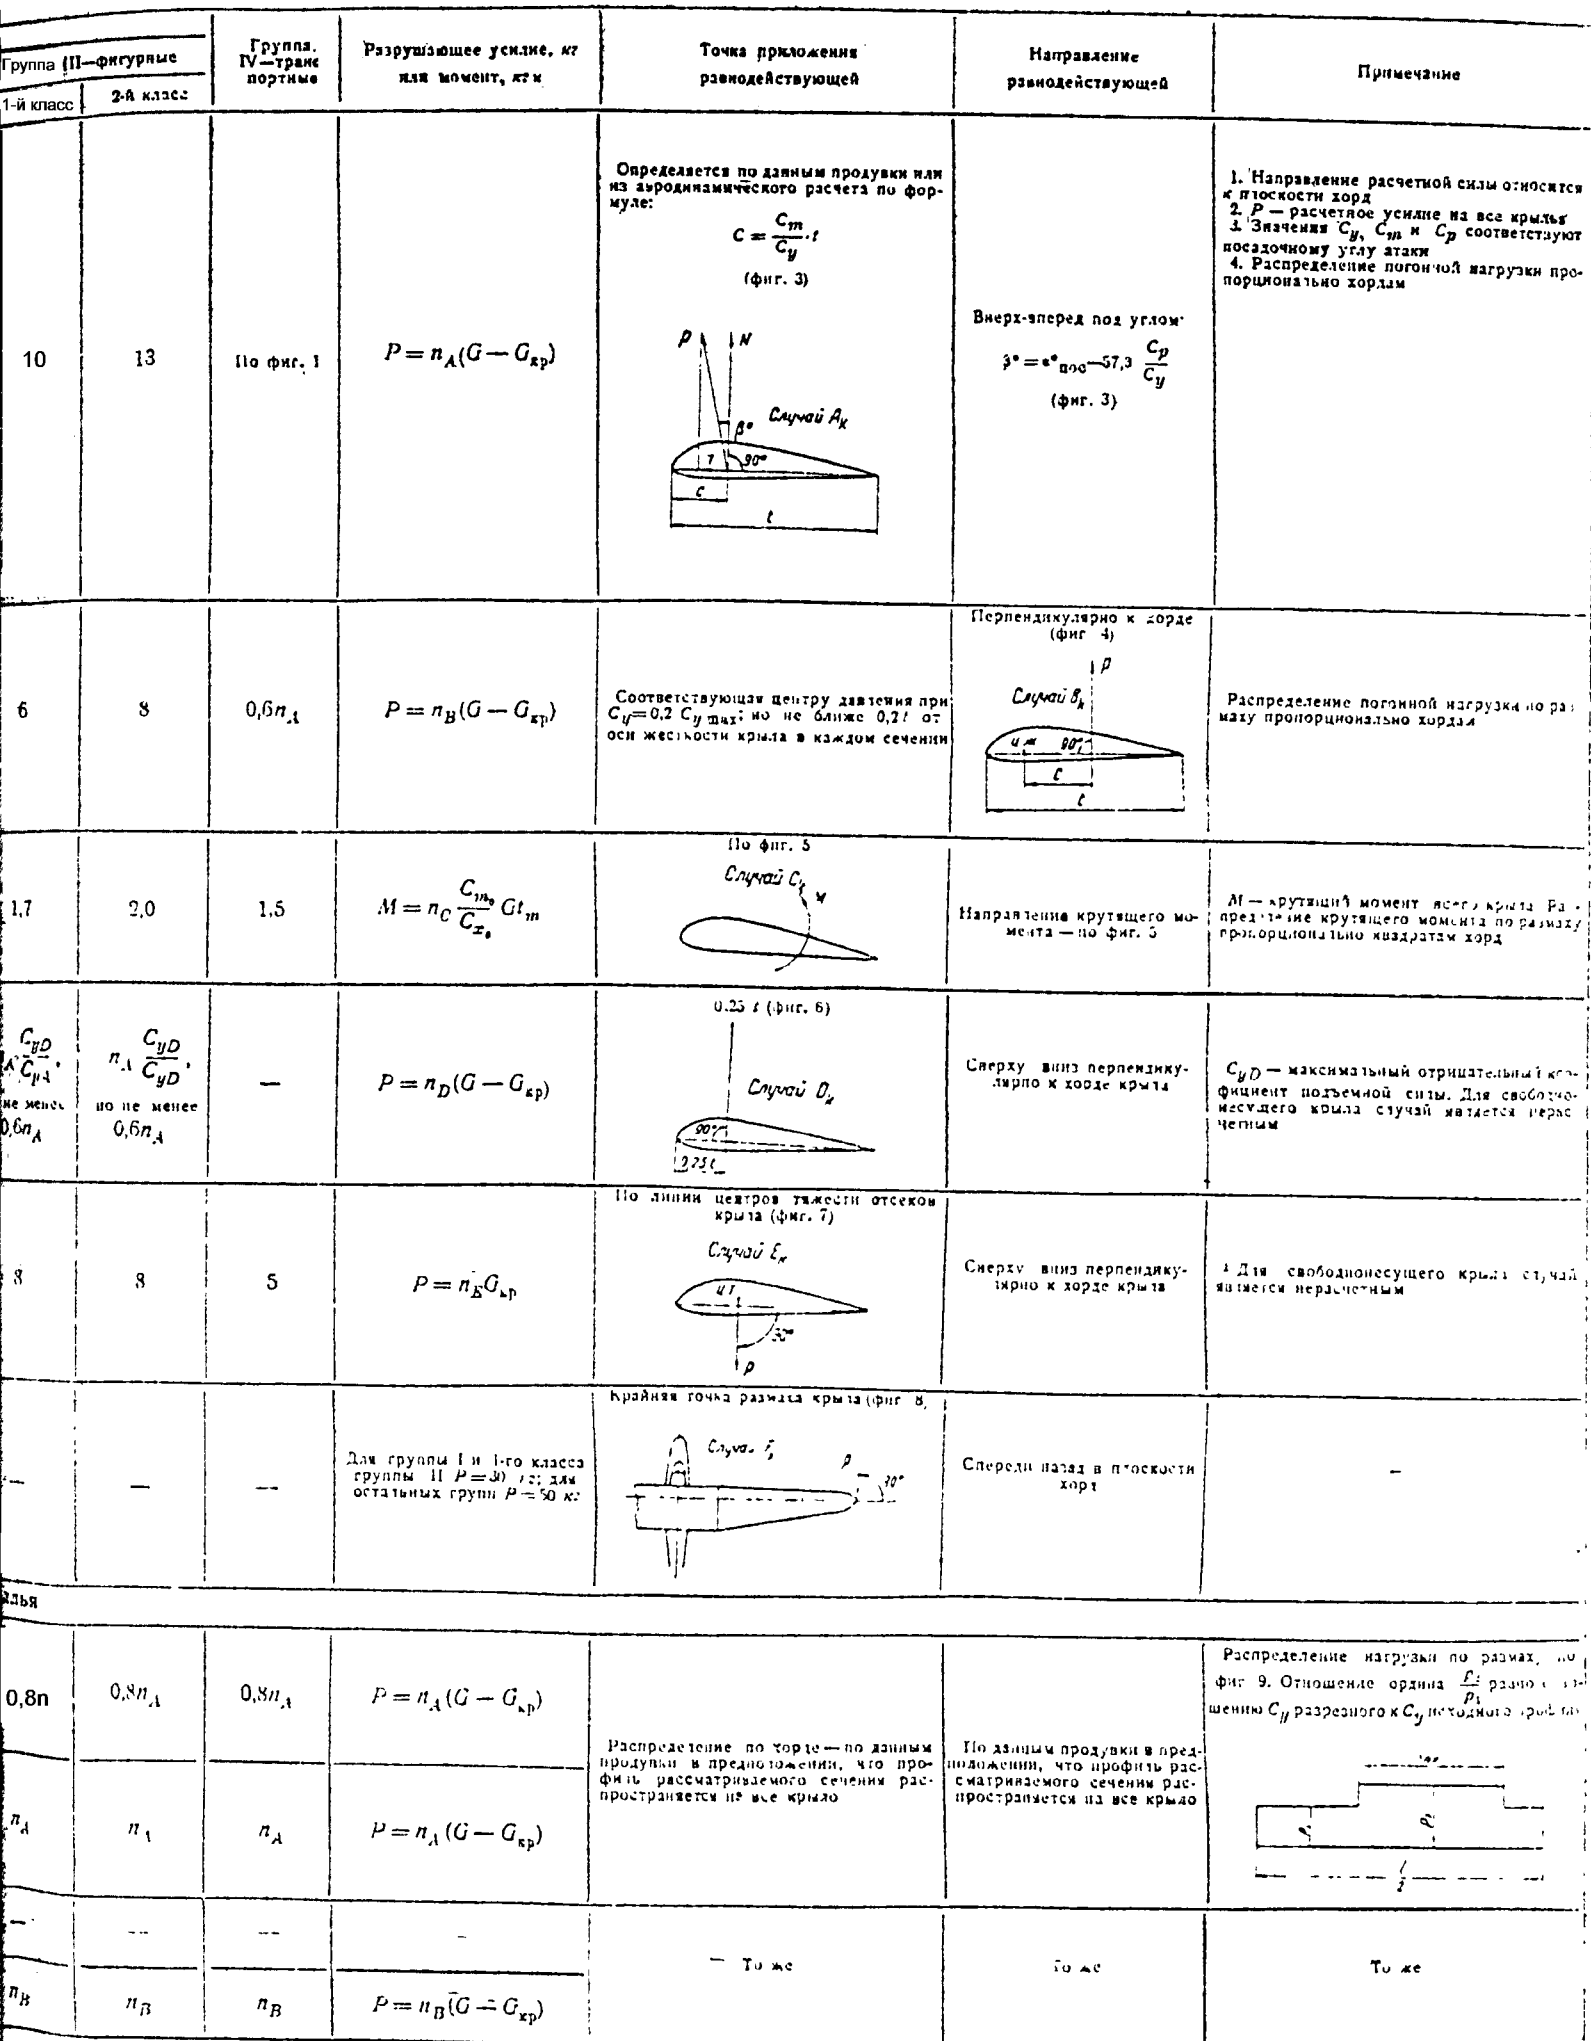 Группа III—фигурные
Группа.
IV—транс
портные
Разрушающее усилие, кг
или момент, кг м
Точка приложения
равнодействующей
Направление
равнодействующей
Примечание
1-й класс
2-й класс
10
13
По фиг. 1
P = n_A(G — G_кр)
Определяется по данным продувки или
из аэродинамического расчета по фор-
муле:
C = C_m/C_y · t
(фиг. 3)
P
N
β°
Случай A_к
90°
C
t
Вверх-вперед под углом:
β° = α°_пос—57,3 C_p/C_y
(фиг. 3)
1. Направление расчетной силы относится
к плоскости хорд
2. P — расчетное усилие на все крылья
3. Значения C_y, C_m и C_p соответствуют
посадочному углу атаки
4. Распределение погонной нагрузки про-
порционально хордам
6
8
0,6n_A
P = n_B(G — G_кр)
Соответствующая центру давления при
C_y=0,2 C_y max; но не ближе 0,2t от
оси жесткости крыла в каждом сечении
Перпендикулярно к хорде
(фиг 4)
P
Случай B_к
ц ж
90°
C
t
Распределение погонной нагрузки по раз
маху пропорционально хордам
1,7
2,0
1,5
M = n_C C_m₀/C_x₀ Gt_m
По фиг. 5
Случай C_к
M
Направления крутящего мо-
мента — по фиг. 5
M — крутящий момент всего крыла Ра
пределение крутящего момента по размаху
пропорционально квадратам хорд
C_yD/C_yA,
не менее
0,6n_A
n_A C_yD/C_yD,
но не менее
0,6n_A
—
P = n_D(G — G_кр)
0.25 t (фиг. 6)
Случай D_к
90°
0,25 t
Сверху вниз перпендику-
лярно к хорде крыла
C_yD — максимальный отрицательный коэ-
фициент подъемной силы. Для свободно-
несущего крыла случай является нерас
четным
8
8
5
P = n_E G_кр
По линии центров тяжести отсеков
крыла (фиг. 7)
Случай E_к
ц т
90°
P
Сверху вниз перпендику-
лярно к хорде крыла
Для свободнонесущего крыла случай
является нерасчетным
—
—
—
Для группы I и 1-го класса
группы II P=30 кг; для
остальных групп P=50 кг
Крайняя точка размаха крыла (фиг 8)
P
30°
Спереди назад в плоскости
хорд
—
лья
0,8n
0,8n_A
0,8n_A
P = n_A(G — G_кр)
Распределение нагрузки по размах, по
фиг 9. Отношение ордина
шению C_y разрезного к C_y исходного
Распределение по хорде—по данным
продувки в предположении, что про-
филь рассматриваемого сечения рас-
пространяется на все крыло
По данным продувки в пред-
положении, что профиль рас-
сматриваемого сечения рас-
пространяется на все крыло
n_A
n_A
n_A
P = n_A (G — G_кр)
l/2
—
—
—
–
— То же
То же
То же
n_B
n_B
n_B
P = n_B(G — G_кр)